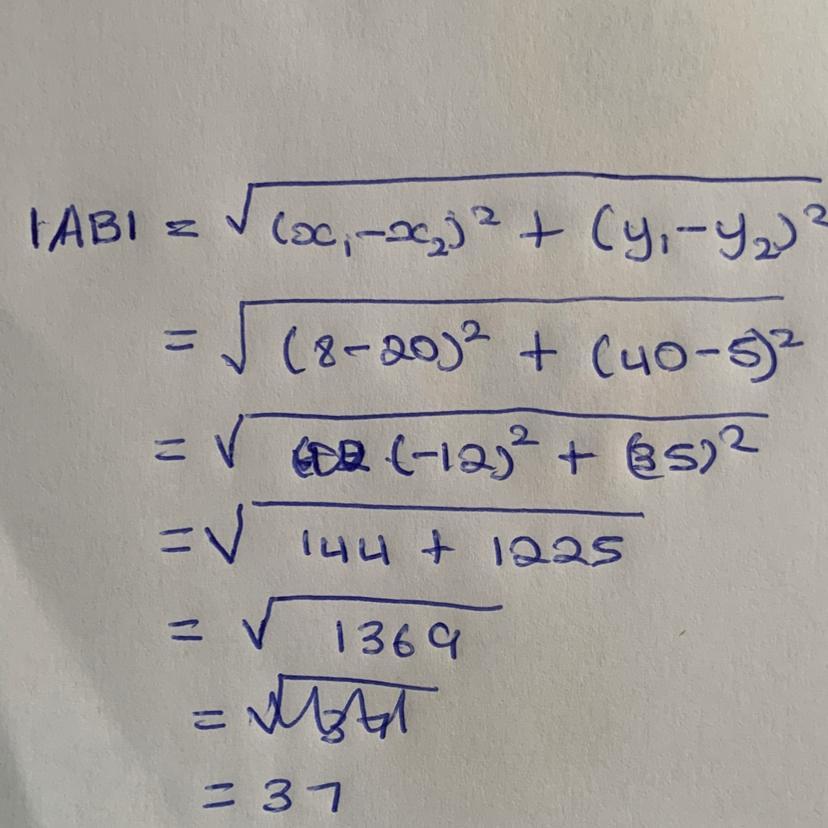 |AB| = √(x₁-x₂)² + (y₁-y₂)²
= √(8-20)² + (40-5)²
= √(-12)² + (35)²
= √144 + 1225
= √1369
= √
= 37